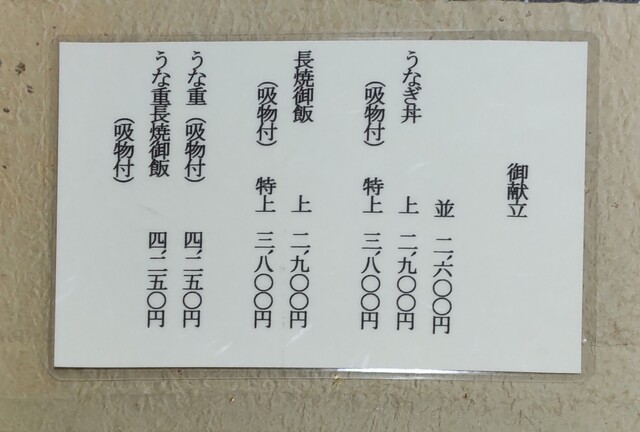 御献立
並 二、六〇〇円
うなぎ丼 上 二、九〇〇円
(吸物付) 特上 三、八〇〇円
長焼御飯 上 二、九〇〇円
(吸物付) 特上 三、八〇〇円
うな重(吸物付) 四、二五〇円
うな重長焼御飯 四、二五〇円
(吸物付)